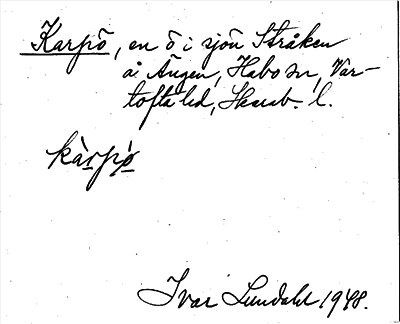 Karpö, en ö i sjön Stråken
å Ängen, Habo sn, Var-
tofta hd, Skarab. l.
kàrpö̀
Ivar Lundahl 1948.